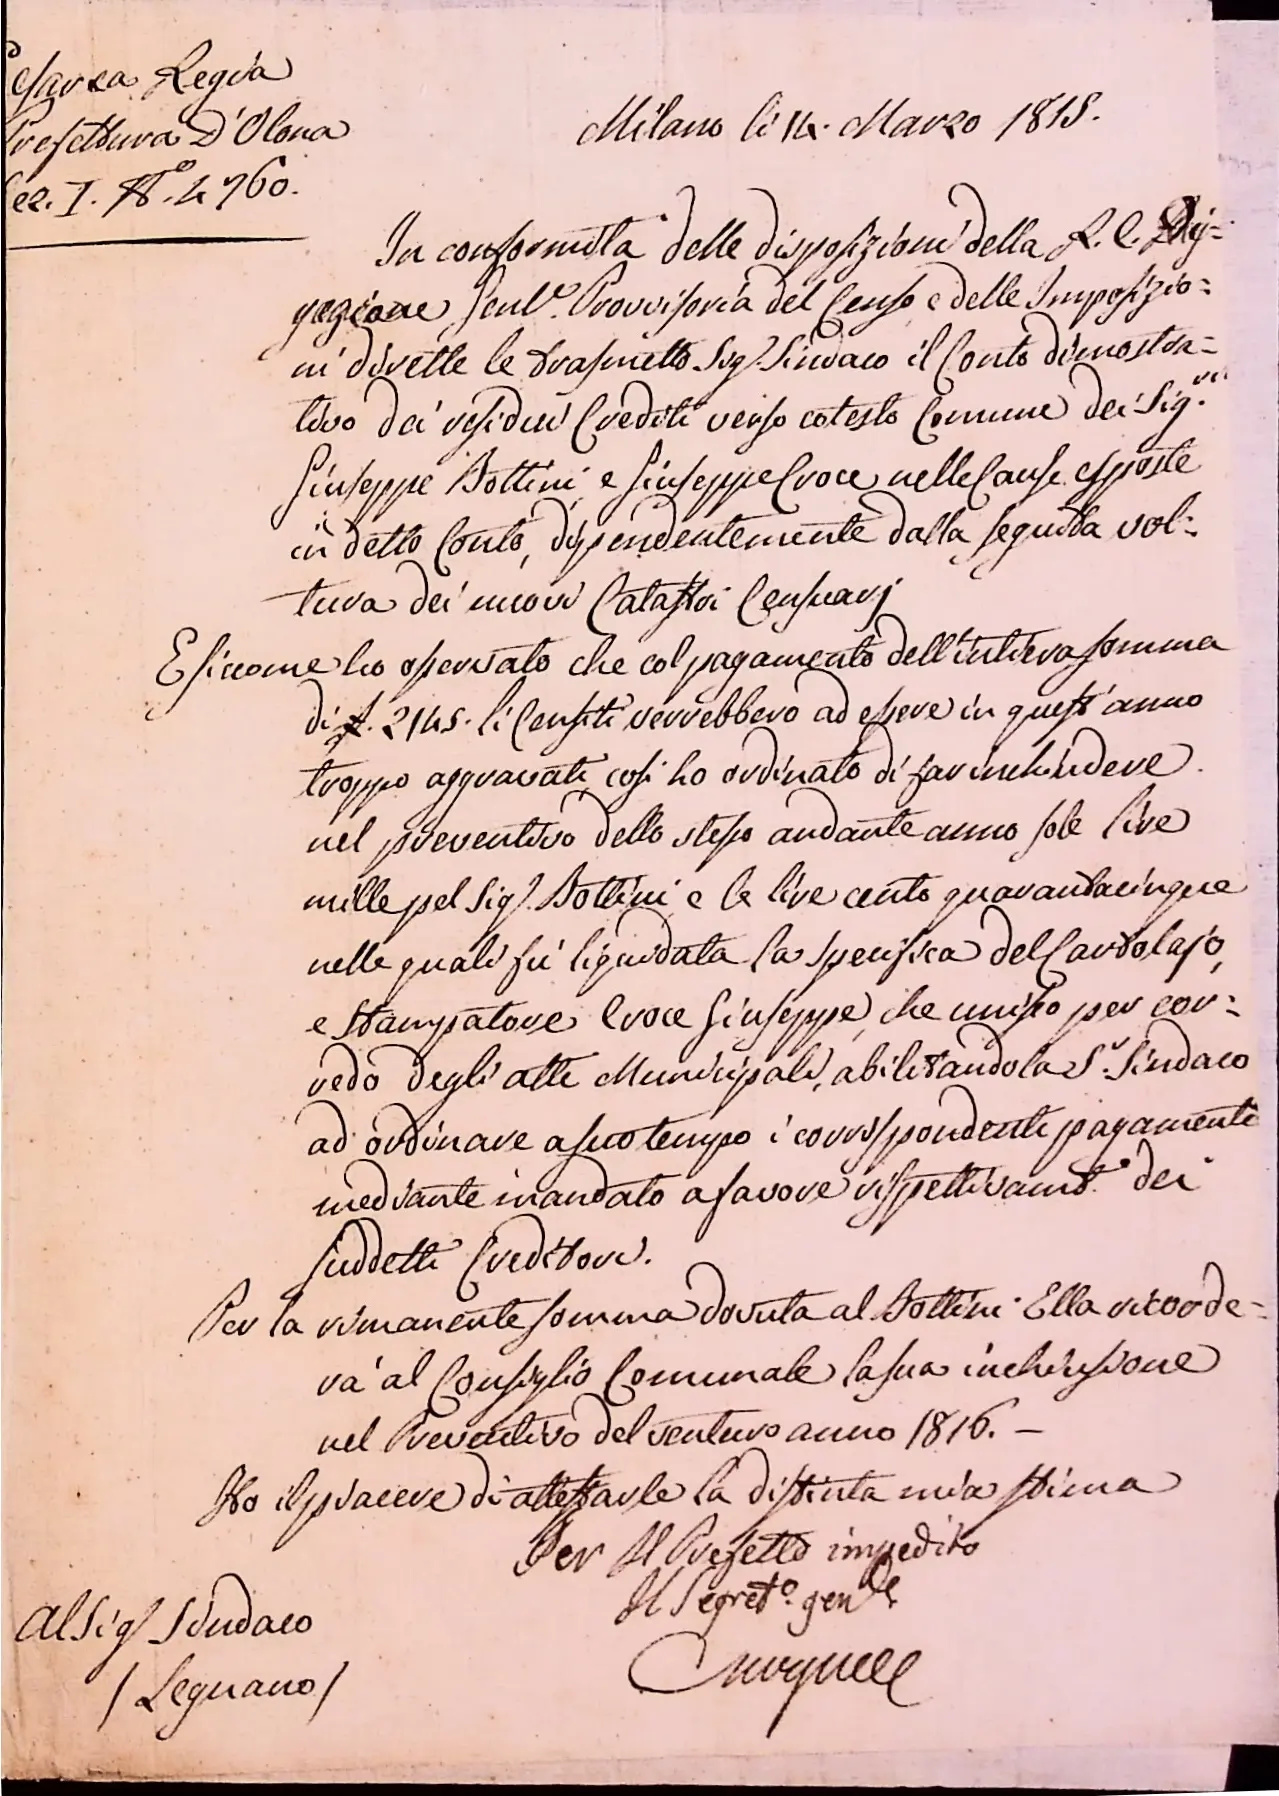 Cesarea Regia
Prefettura D'Olona
Sez. I. N.º 4760.
Milano li 14. Marzo 1815.
In conformità delle disposizioni della R. C.
gazione Genle. Provvisoria del Censo e delle Imposizio=
ni dirette le trasmetto Sigr. Sindaco il Conto dimostra=
tivo dei residui Crediti verso cotesto Comune dei Sig.ri
Giuseppe Bottini e Giuseppe Croce nelle Cause esposte
in detto Conto, dipendentemente dalla seguita vol=
tura dei nuovi Catastri Censuarj
E siccome ho osservato che col pagamento dell'intiera somma
di £. 2145. li Censiti verrebbero ad essere in quest'anno
troppo aggravati, così ho ordinato di far inchiudere
nel preventivo dello stesso andante anno sole lire
mille pel Sigr. Bottini e le lire cento quarantacinque
nelle quali fù liquidata la specifica del Cartolajo,
e Stampatore Croce Giuseppe, che unisco per cor=
redo degli atti Municipali, abilitandola Sr. Sindaco
ad ordinare a suo tempo i corrispondenti pagamenti
mediante mandato a favore rispettivamte. dei
suddetti Creditori.
Per la rimanente somma dovuta al Bottini Ella ricorde=
rà al Consiglio Comunale la sua inchiusione
nel Preventivo del venturo anno 1816. —
Ho il piacere di attestarle la distinta mia stima
Per Il Prefetto impedito
Il Segretº. genle
Al Sigr Sindaco
/ Legnano /